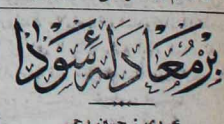 بر معادلهٔ سودا